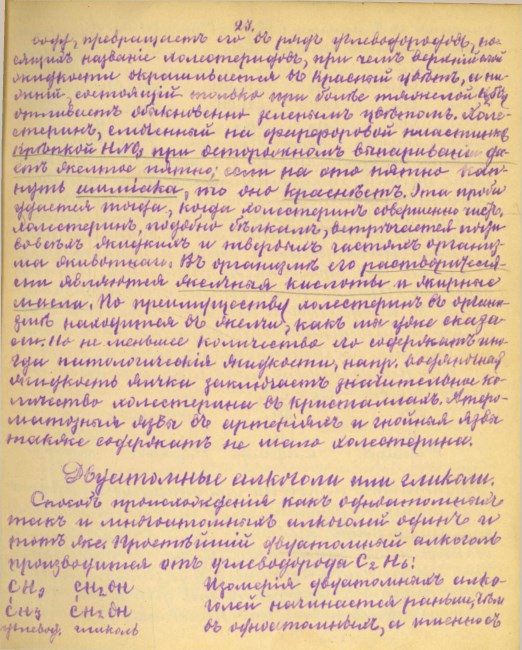 23.
превращаетъ его въ рядъ углеводородовъ, но-
сящихъ названіе холестериловъ, при чемъ верхній слой
жидкости окрашивается въ красный цвѣтъ, а ни-
жній, состоящій только при болѣе тяжелой
отливаетъ обыкновенно зеленымъ цвѣтомъ. Холе-
стеринъ, смоченный на фарфоровой пластинкѣ
крѣпкой HNO3 при осторожномъ выпариваніи да-
етъ желтое пятно; если на это пятно кап-
нуть амміака, то оно краснѣетъ. Эта проба
удается тогда, когда холестеринъ совершенно чистъ.
Холестеринъ, подобно бѣлкамъ, встрѣчается почти
во всѣхъ жидкихъ и твердыхъ частяхъ организ-
ма животнаго. Въ организмѣ его растворителя-
ми являются желчныя кислоты и жирныя
масла. По преимуществу холестеринъ въ орга-
низмѣ находится въ желчи, какъ мы уже сказа-
ли. Но не меньшее количество его содержатъ ино-
гда патологическія жидкости, напр. водяночная
жидкость яичка заключаетъ значительное ко-
личество холестерина въ кристаллахъ. Атеро-
матозныя язвы въ артеріяхъ и гнойныя язвы
также содержатъ не мало холестерина.
Двуатомные алкоголи или гликоли.
Способъ происхожденія какъ одноатомныхъ
такъ и многоатомныхъ алкоголей одинъ и
тотъ же. Простѣйшій двуатомный алкоголь
производится отъ углеводорода C2H6:
CH3 CH2OH Изомерія двуатомныхъ алко-
CH3 CH2OH голей начинается раньше, чѣмъ
углевод. гликоль въ одноатомныхъ, а именно съ